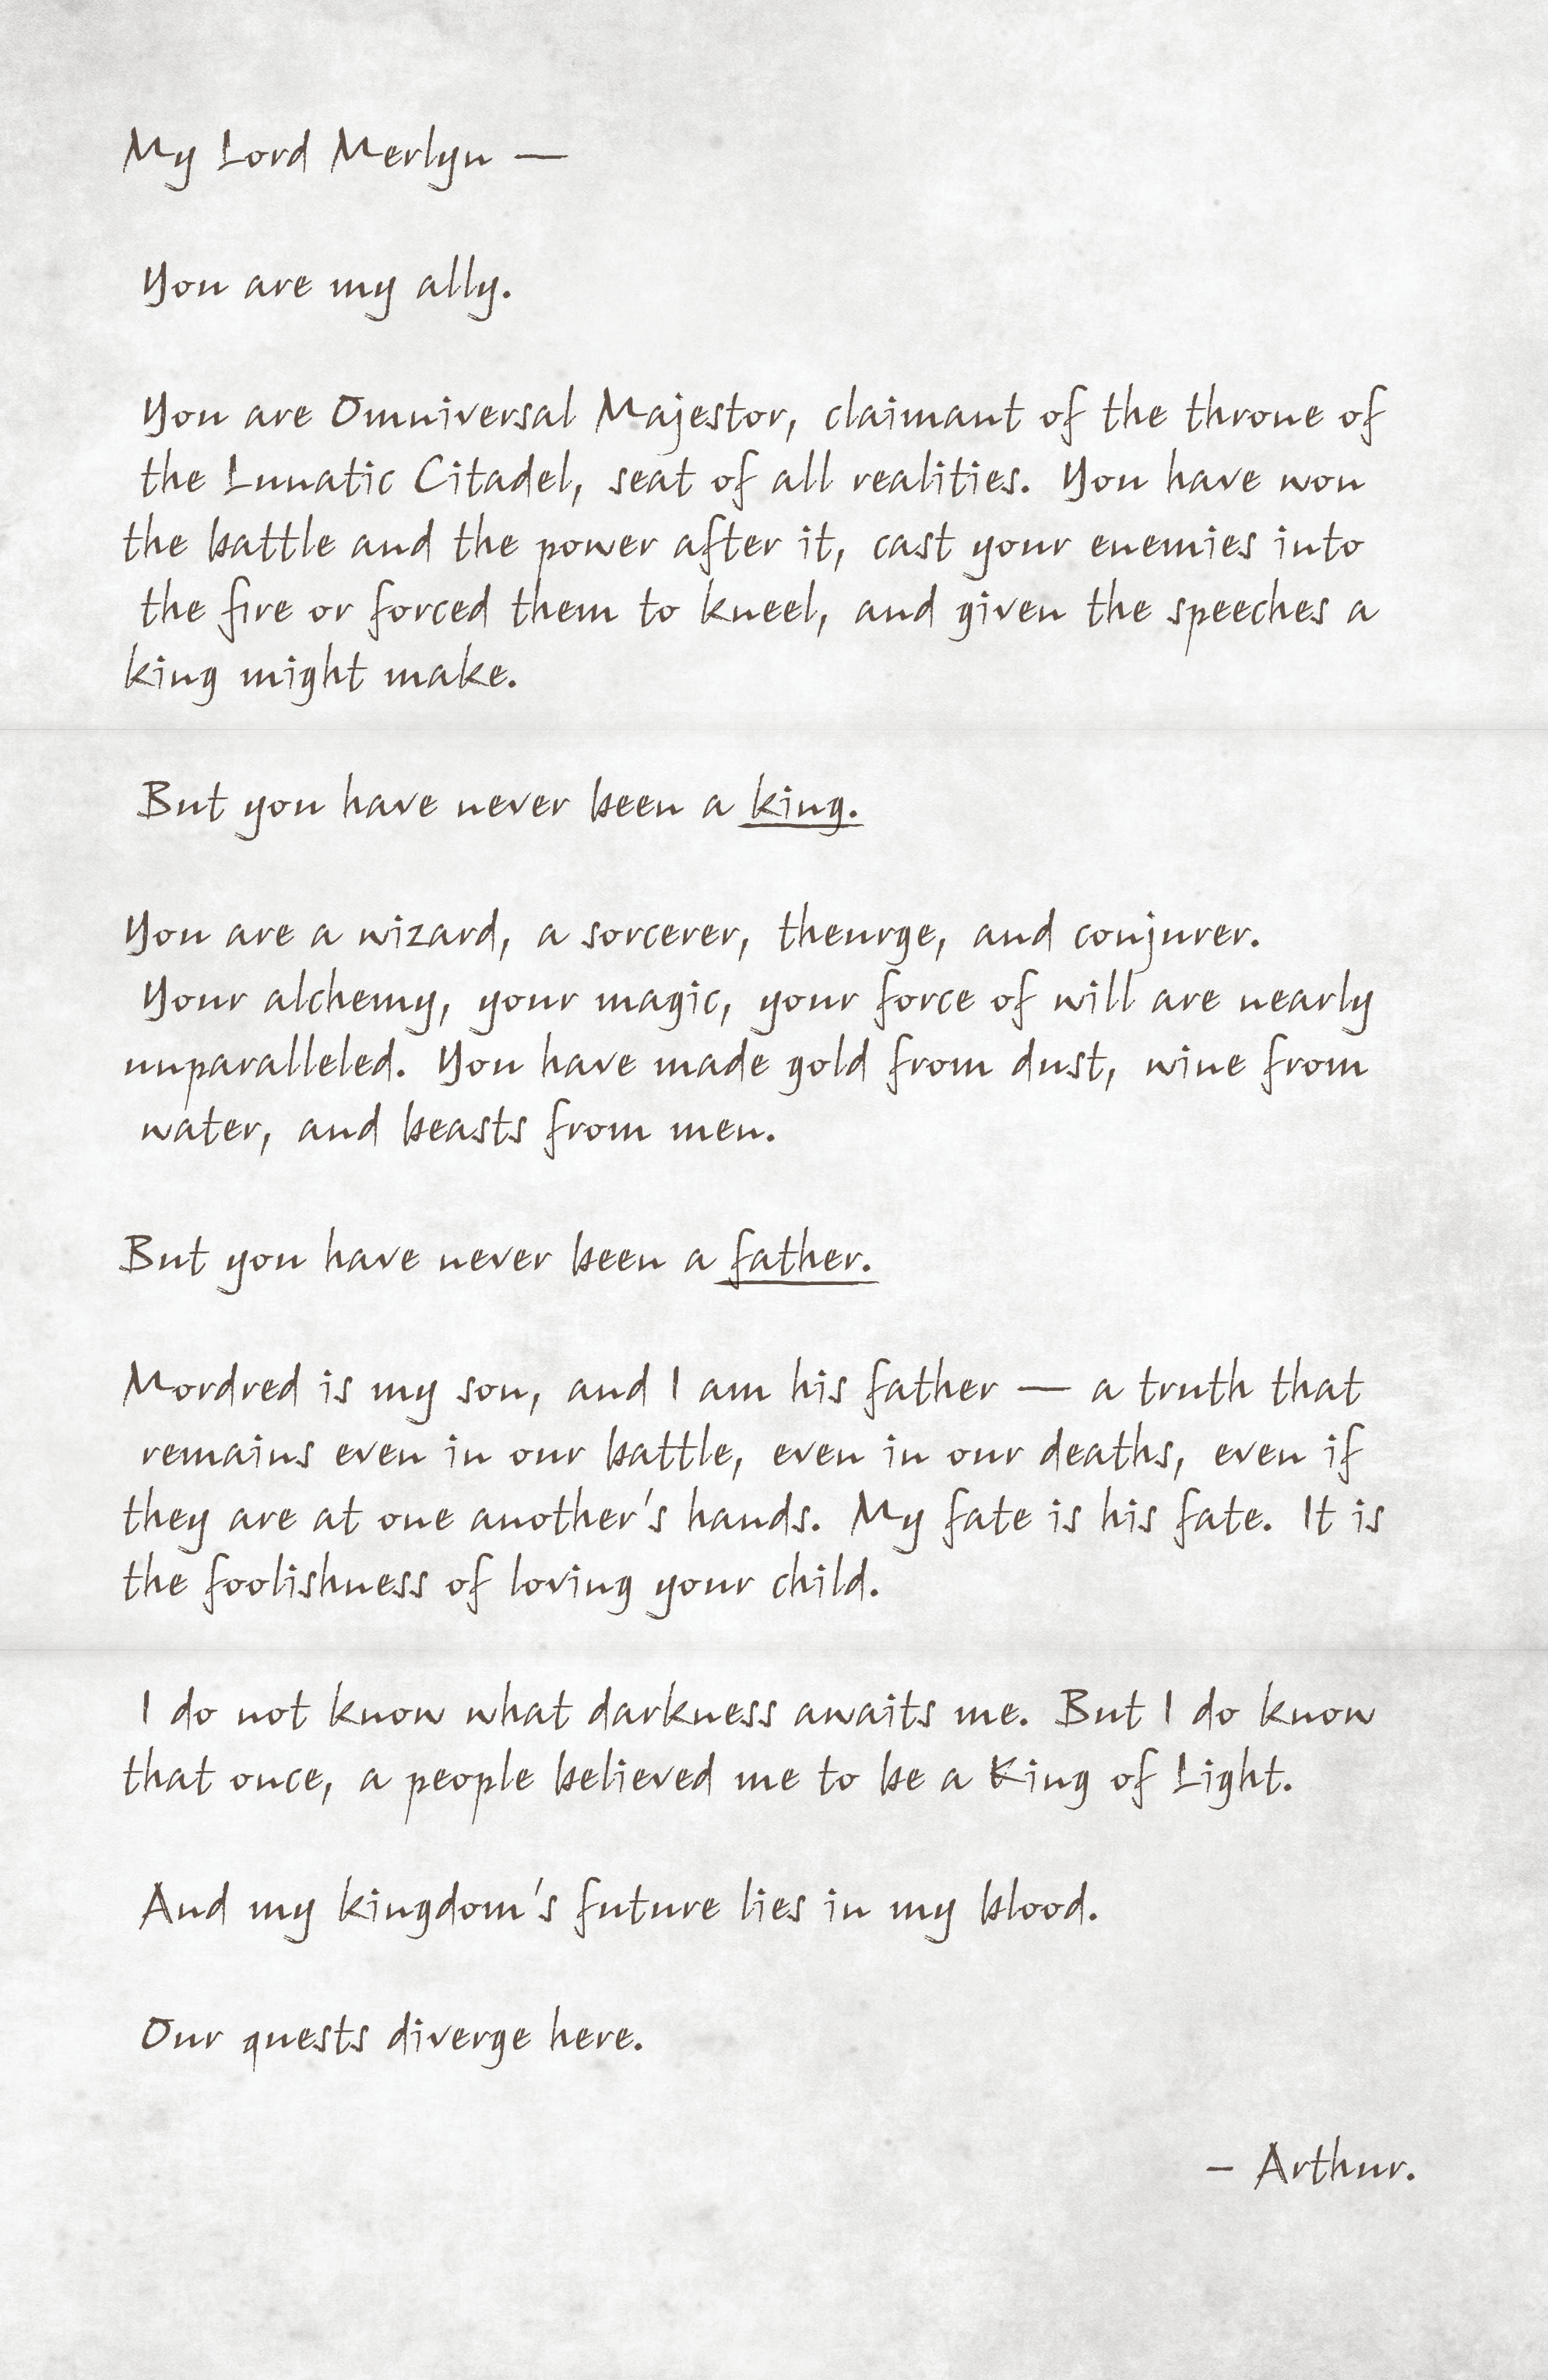 My Lord Merlyn —
You are my ally.
You are Omniversal Majestor, claimant of the throne of
the Lunatic Citadel, seat of all realities. You have won
the battle and the power after it, cast your enemies into
the fire or forced them to kneel, and given the speeches a
king might make.
But you have never been a king.
You are a wizard, a sorcerer, theurge, and conjurer.
Your alchemy, your magic, your force of will are nearly
unparalleled. You have made gold from dust, wine from
water, and beasts from men.
But you have never been a father.
Mordred is my son, and I am his father — a truth that
remains even in our battle, even in our deaths, even if
they are at one another's hands. My fate is his fate. It is
the foolishness of loving your child.
I do not know what darkness awaits me. But I do know
that once, a people believed me to be a King of Light.
And my kingdom's future lies in my blood.
Our quests diverge here.
– Arthur.